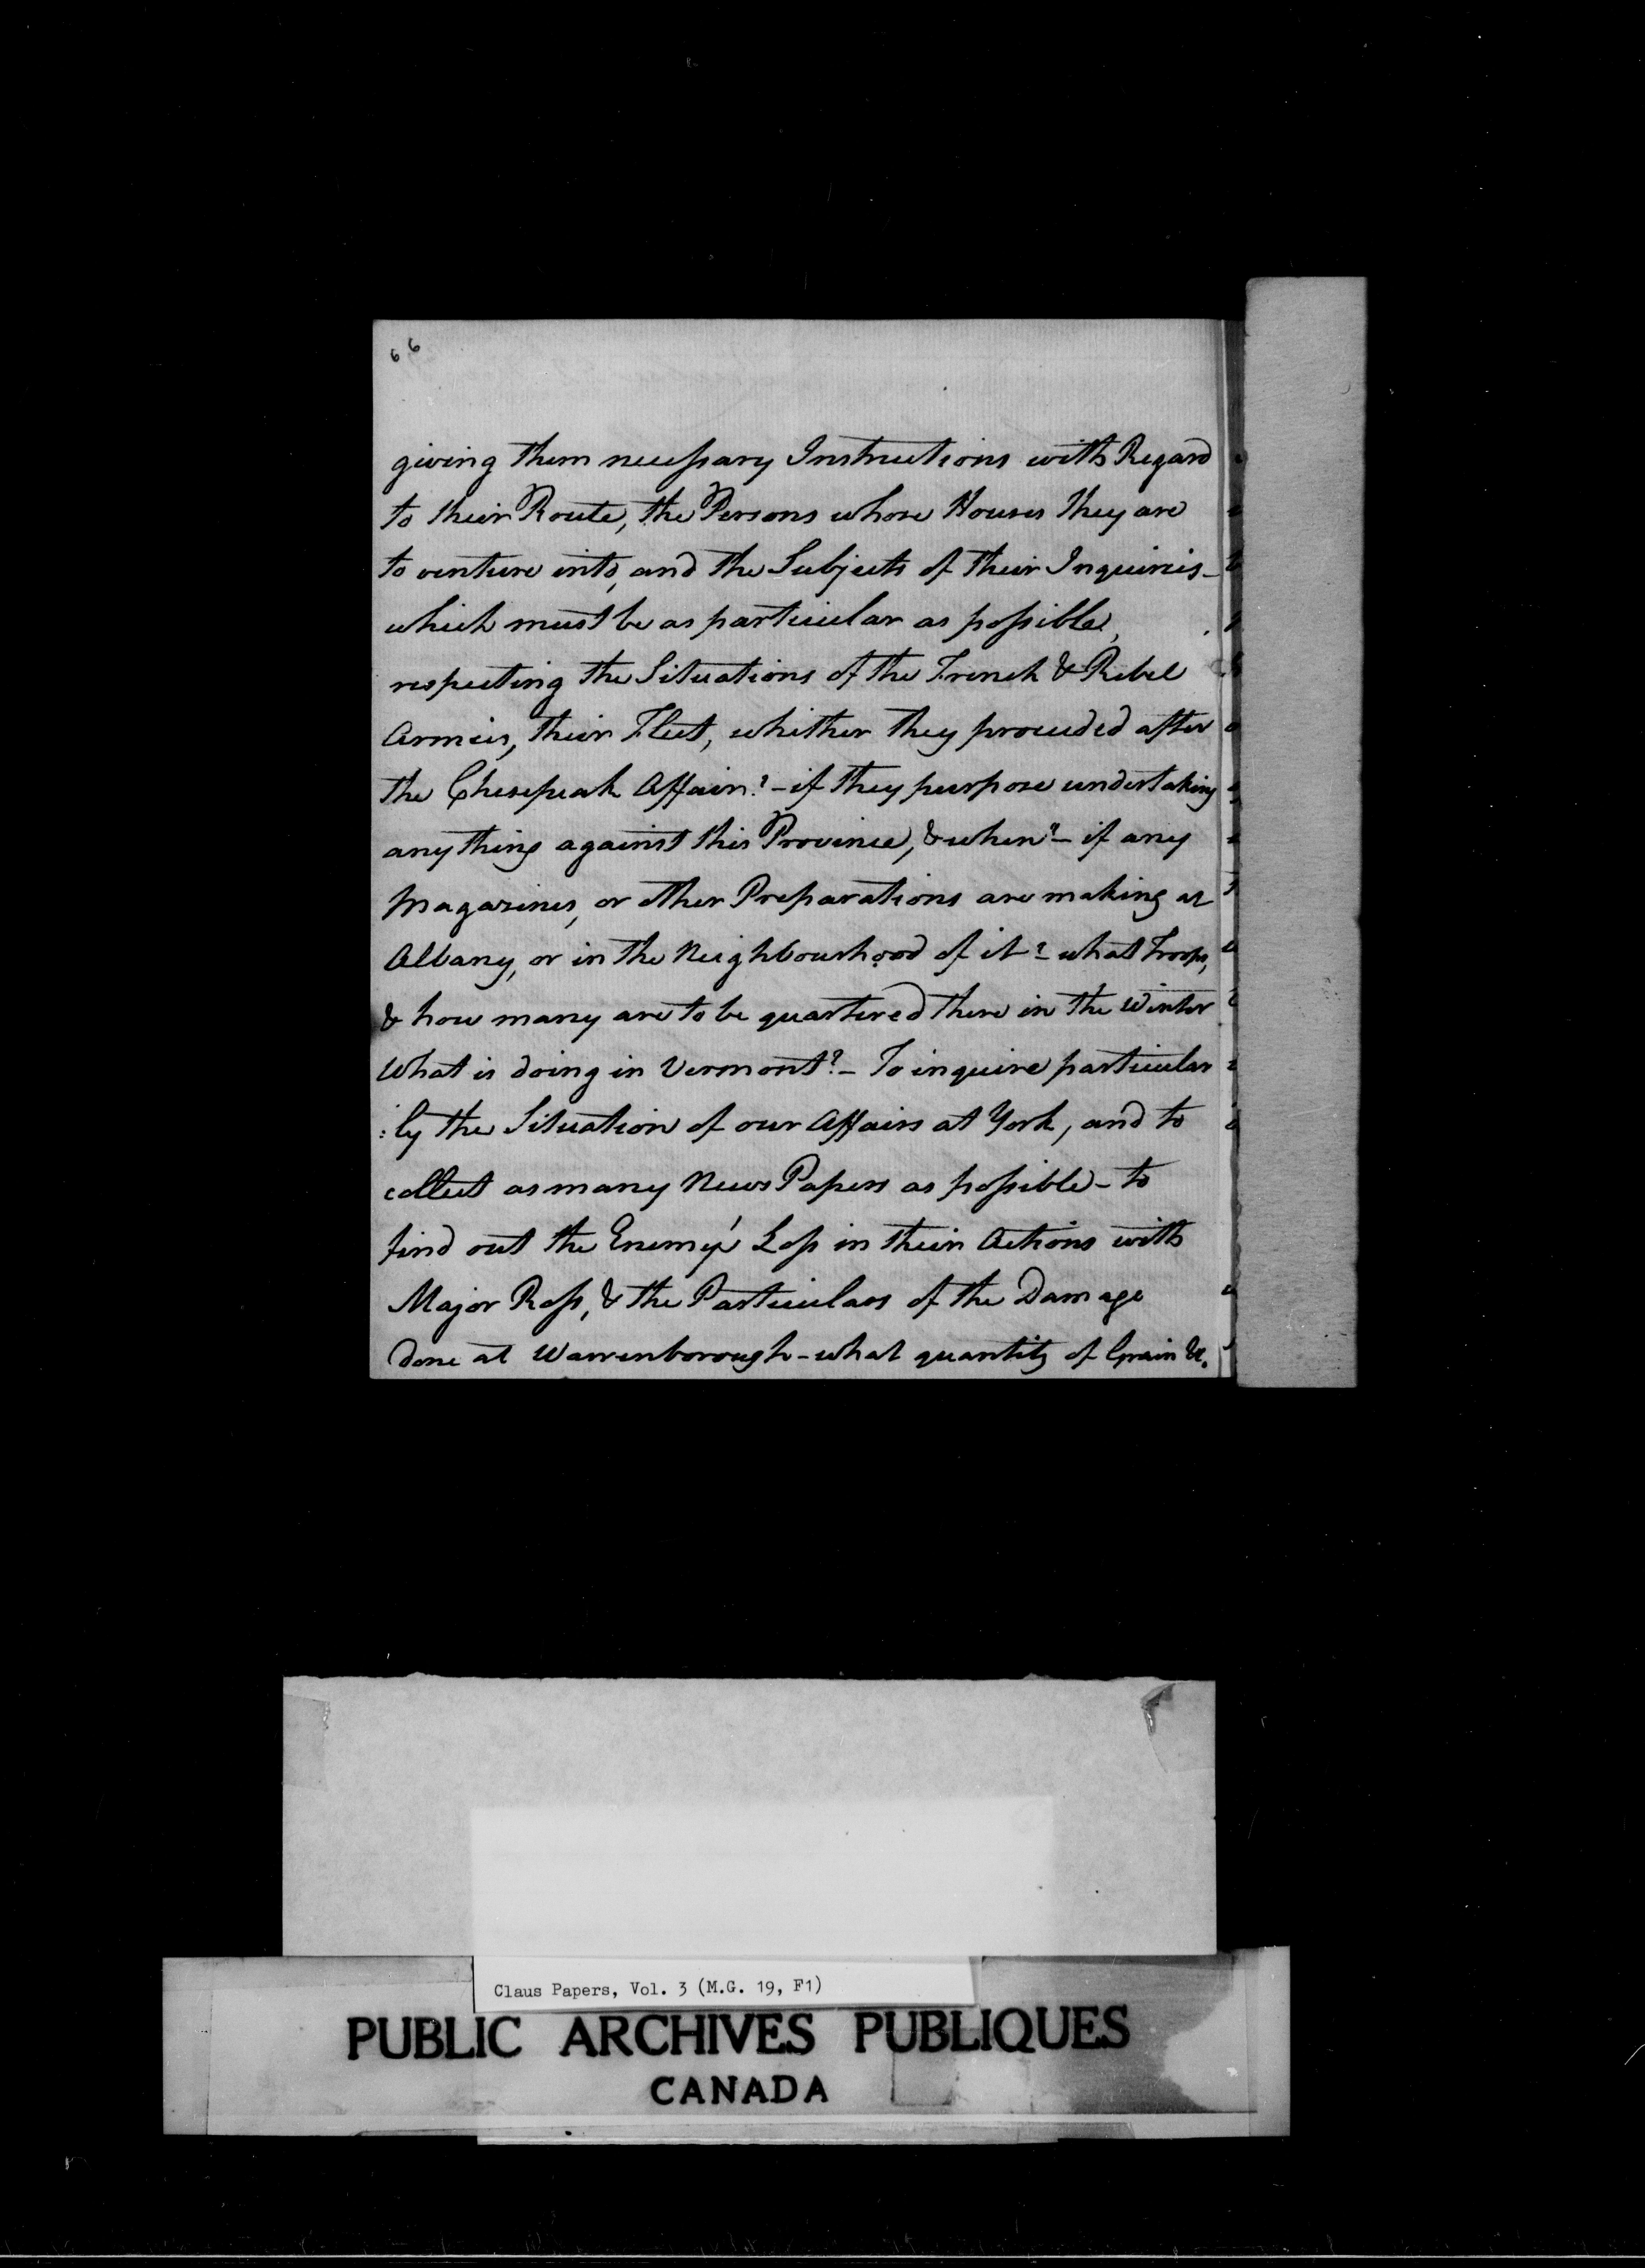 66
giving them necessary Instructions with Regard
to their Route, the Persons whose Houses they are
to venture into, and the Subjects of their Inquiries_
which must be as particular as possible,
respecting the Situations of the French & Rebel
Armies, their Fleet, whither they proceeded after
the Chesepeak Affair?_ if they purpose undertaking
any thing against this Province, & when?_ if any
Magazines, or other Preparations are making at
Albany, or in the Neighbourhood of it?_ what Troops,
& how many are to be quartered there in the Winter
What is doing in Vermont?_ To inquire particular
:ly the Situation of our Affairs at York, and to
collect as many News Papers as possible_ to
find out the Enemy's Loss in their Actions with
Major Ross, & the Particulars of the Damage
done at Warrenborough_ what quantity of Grain &c.
Claus Papers, Vol. 3 (M.G. 19, F1)
PUBLIC ARCHIVES PUBLIQUES
CANADA